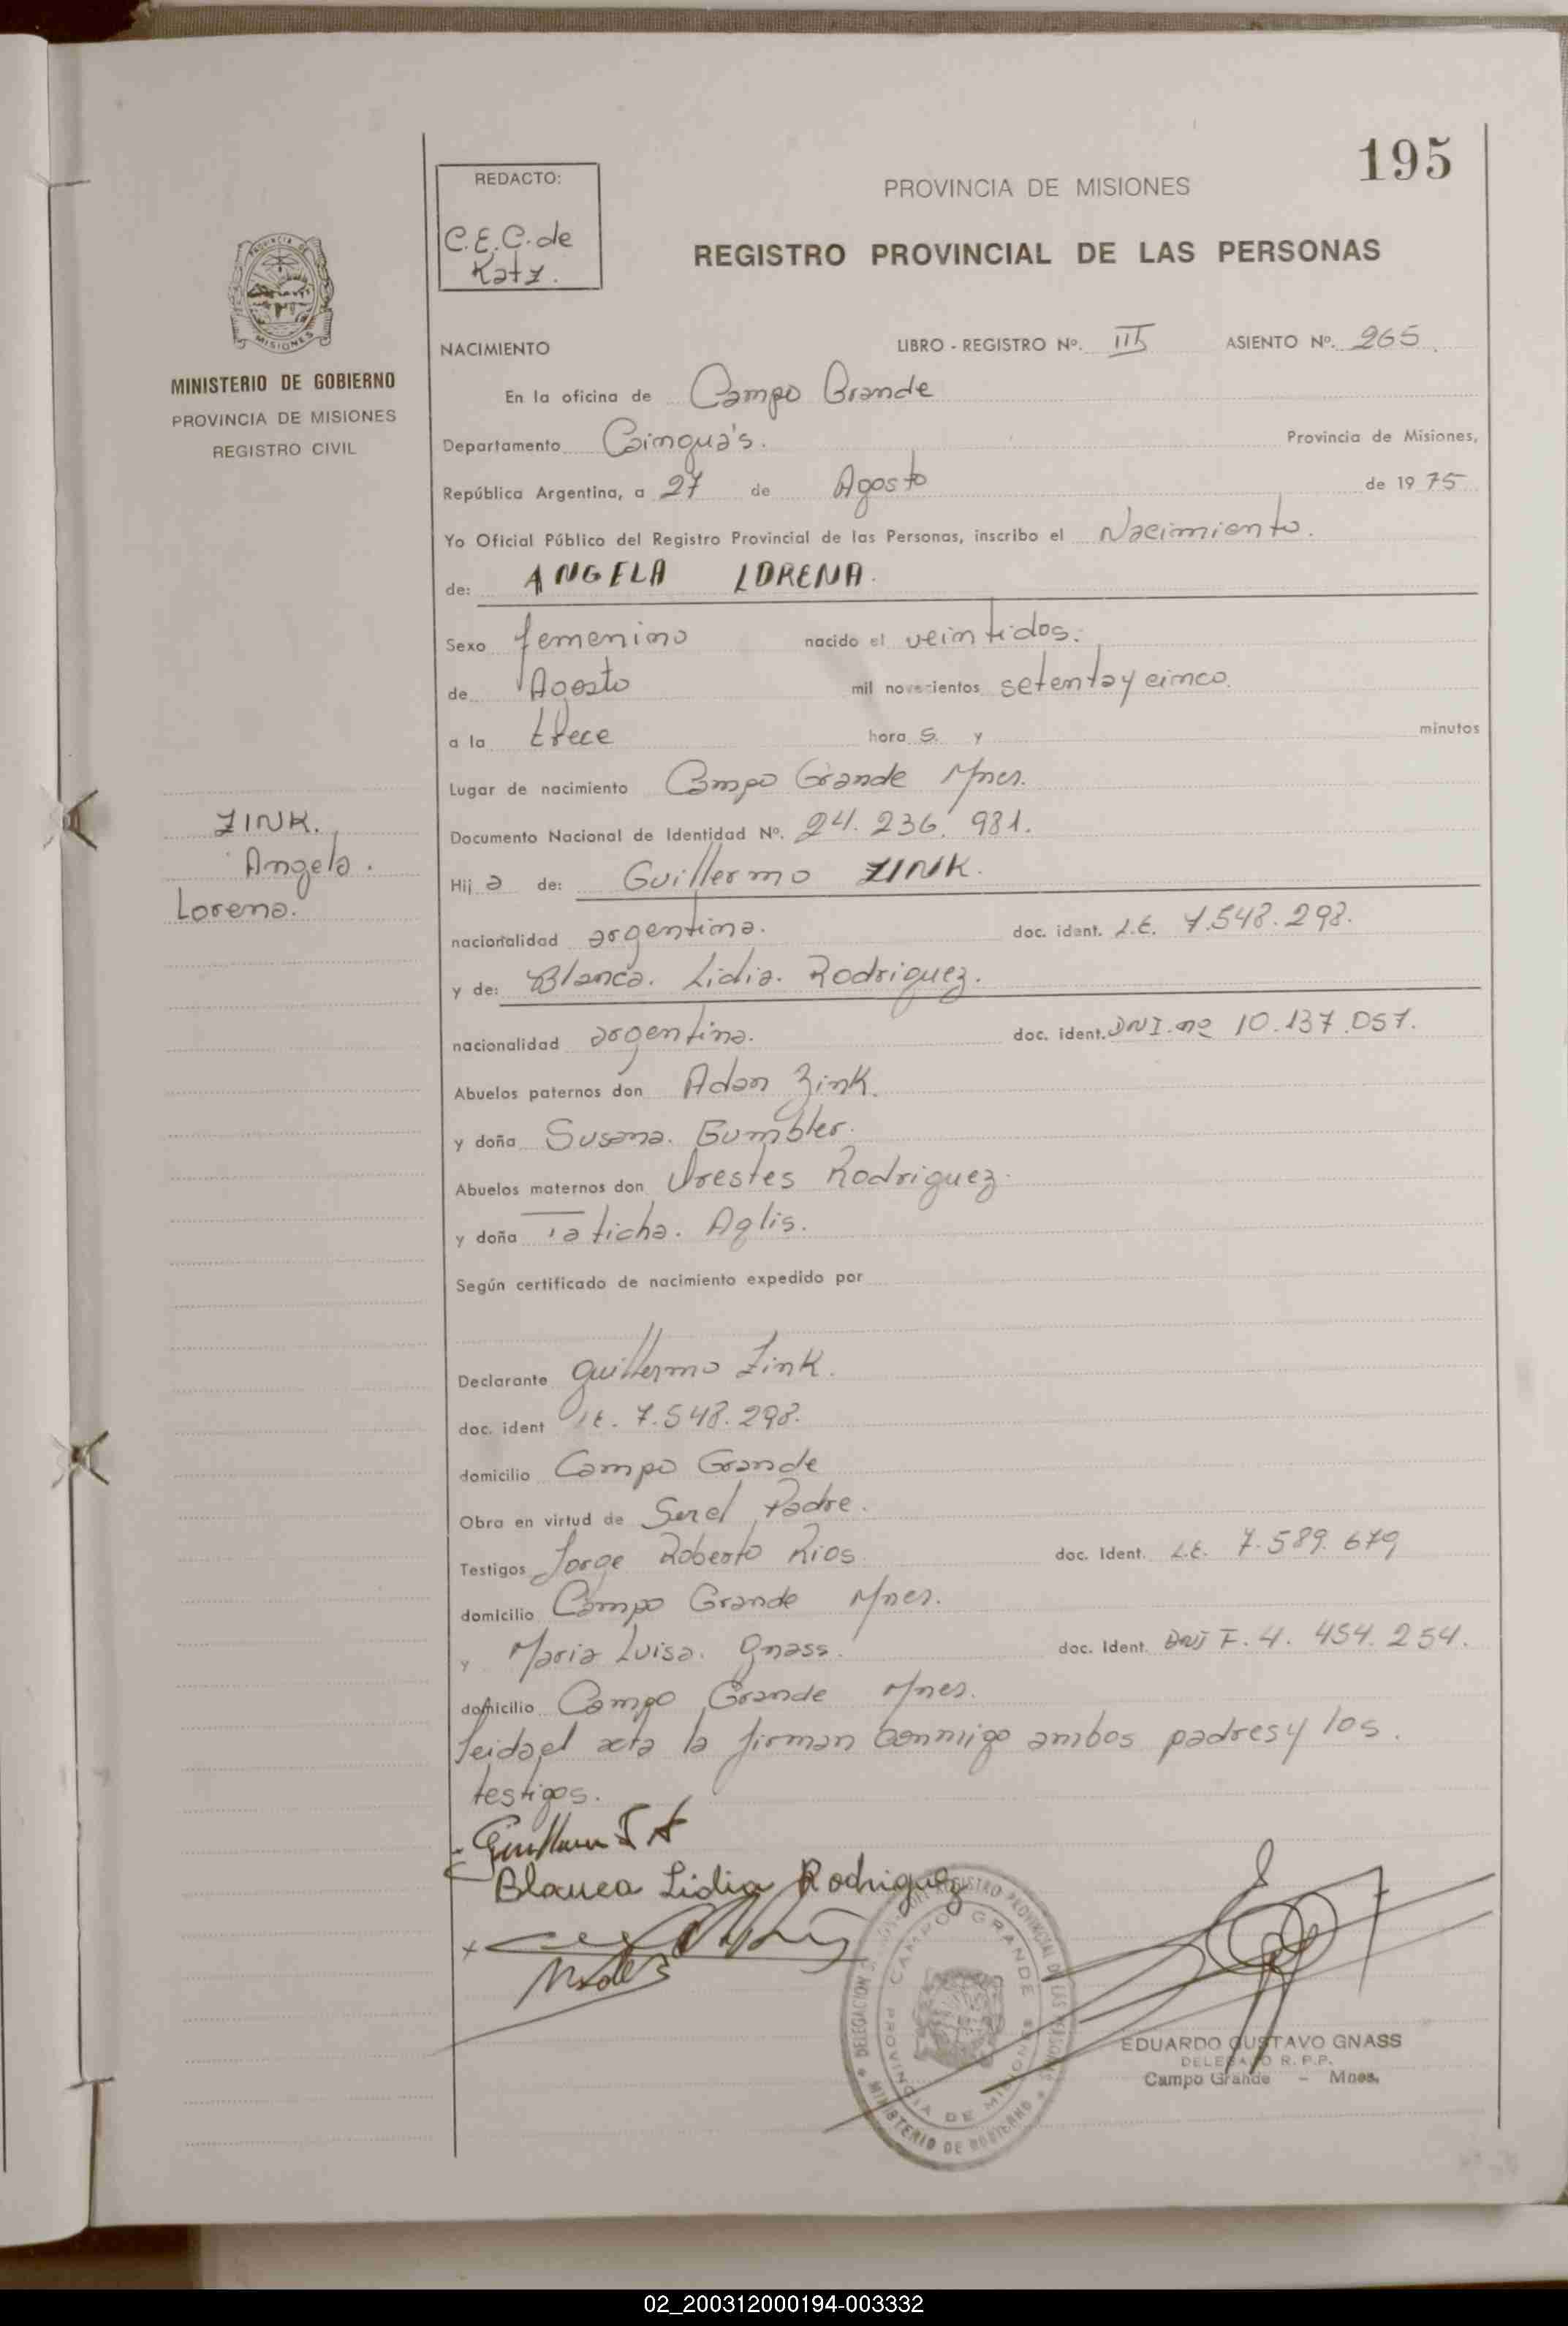 195
REDACTO:
C.E.C. de
Katz.
PROVINCIA DE MISIONES
REGISTRO PROVINCIAL DE LAS PERSONAS
MINISTERIO DE GOBIERNO
PROVINCIA DE MISIONES
REGISTRO CIVIL
NACIMIENTO LIBRO - REGISTRO Nº. III ASIENTO Nº. 265
En la oficina de Campo Grande
Departamento Cainguá's. Provincia de Misiones,
República Argentina, a 27 de Agosto de 1975
Yo Oficial Público del Registro Provincial de las Personas, inscribo el Nacimiento.
de: ANGELA LORENA.
Sexo femenino nacido el veintidos.
de Agosto mil novecientos setenta y cinco.
a la trece horas. y minutos
Lugar de nacimiento Campo Grande Mnes.
ZINK.
Angela.
Lorena.
Documento Nacional de Identidad Nº. 24.236.981.
Hija de: Guillermo ZINK.
nacionalidad argentina. doc. ident. L.E. 7.548.298.
y de: Blanca. Lidia. Rodriguez.
nacionalidad argentina. doc. ident. DNI. nº 10.137.057.
Abuelos paternos don Adan Zink.
y doña Susana. Gumbler.
Abuelos maternos don Orestes Rodriguez.
y doña Taticha. Aglis.
Según certificado de nacimiento expedido por
Declarante Guillermo Zink.
doc. ident L.E. 7.548.298.
domicilio Campo Grande
Obra en virtud de Ser el Padre.
Testigos Jorge Roberto Rios doc. Ident. L.E. 7.589.679
domicilio Campo Grande Mnes.
y Maria Luisa. Gnass. doc. Ident. DNI F. 4. 454. 254.
domicilio Campo Grande Mnes.
leida el acta la firman conmigo ambos padres y los.
testigos.
Blanca Lidia Rodriguez
DELEGACION REGISTRO PROVINCIAL DE LAS PERSONAS
CAMPO GRANDE
PROVINCIA DE MISIONES
MINISTERIO DE GOBIERNO
EDUARDO GUSTAVO GNASS
DELEGADO R.P.P.
Campo Grande - Mnes.
02_200312000194-003332